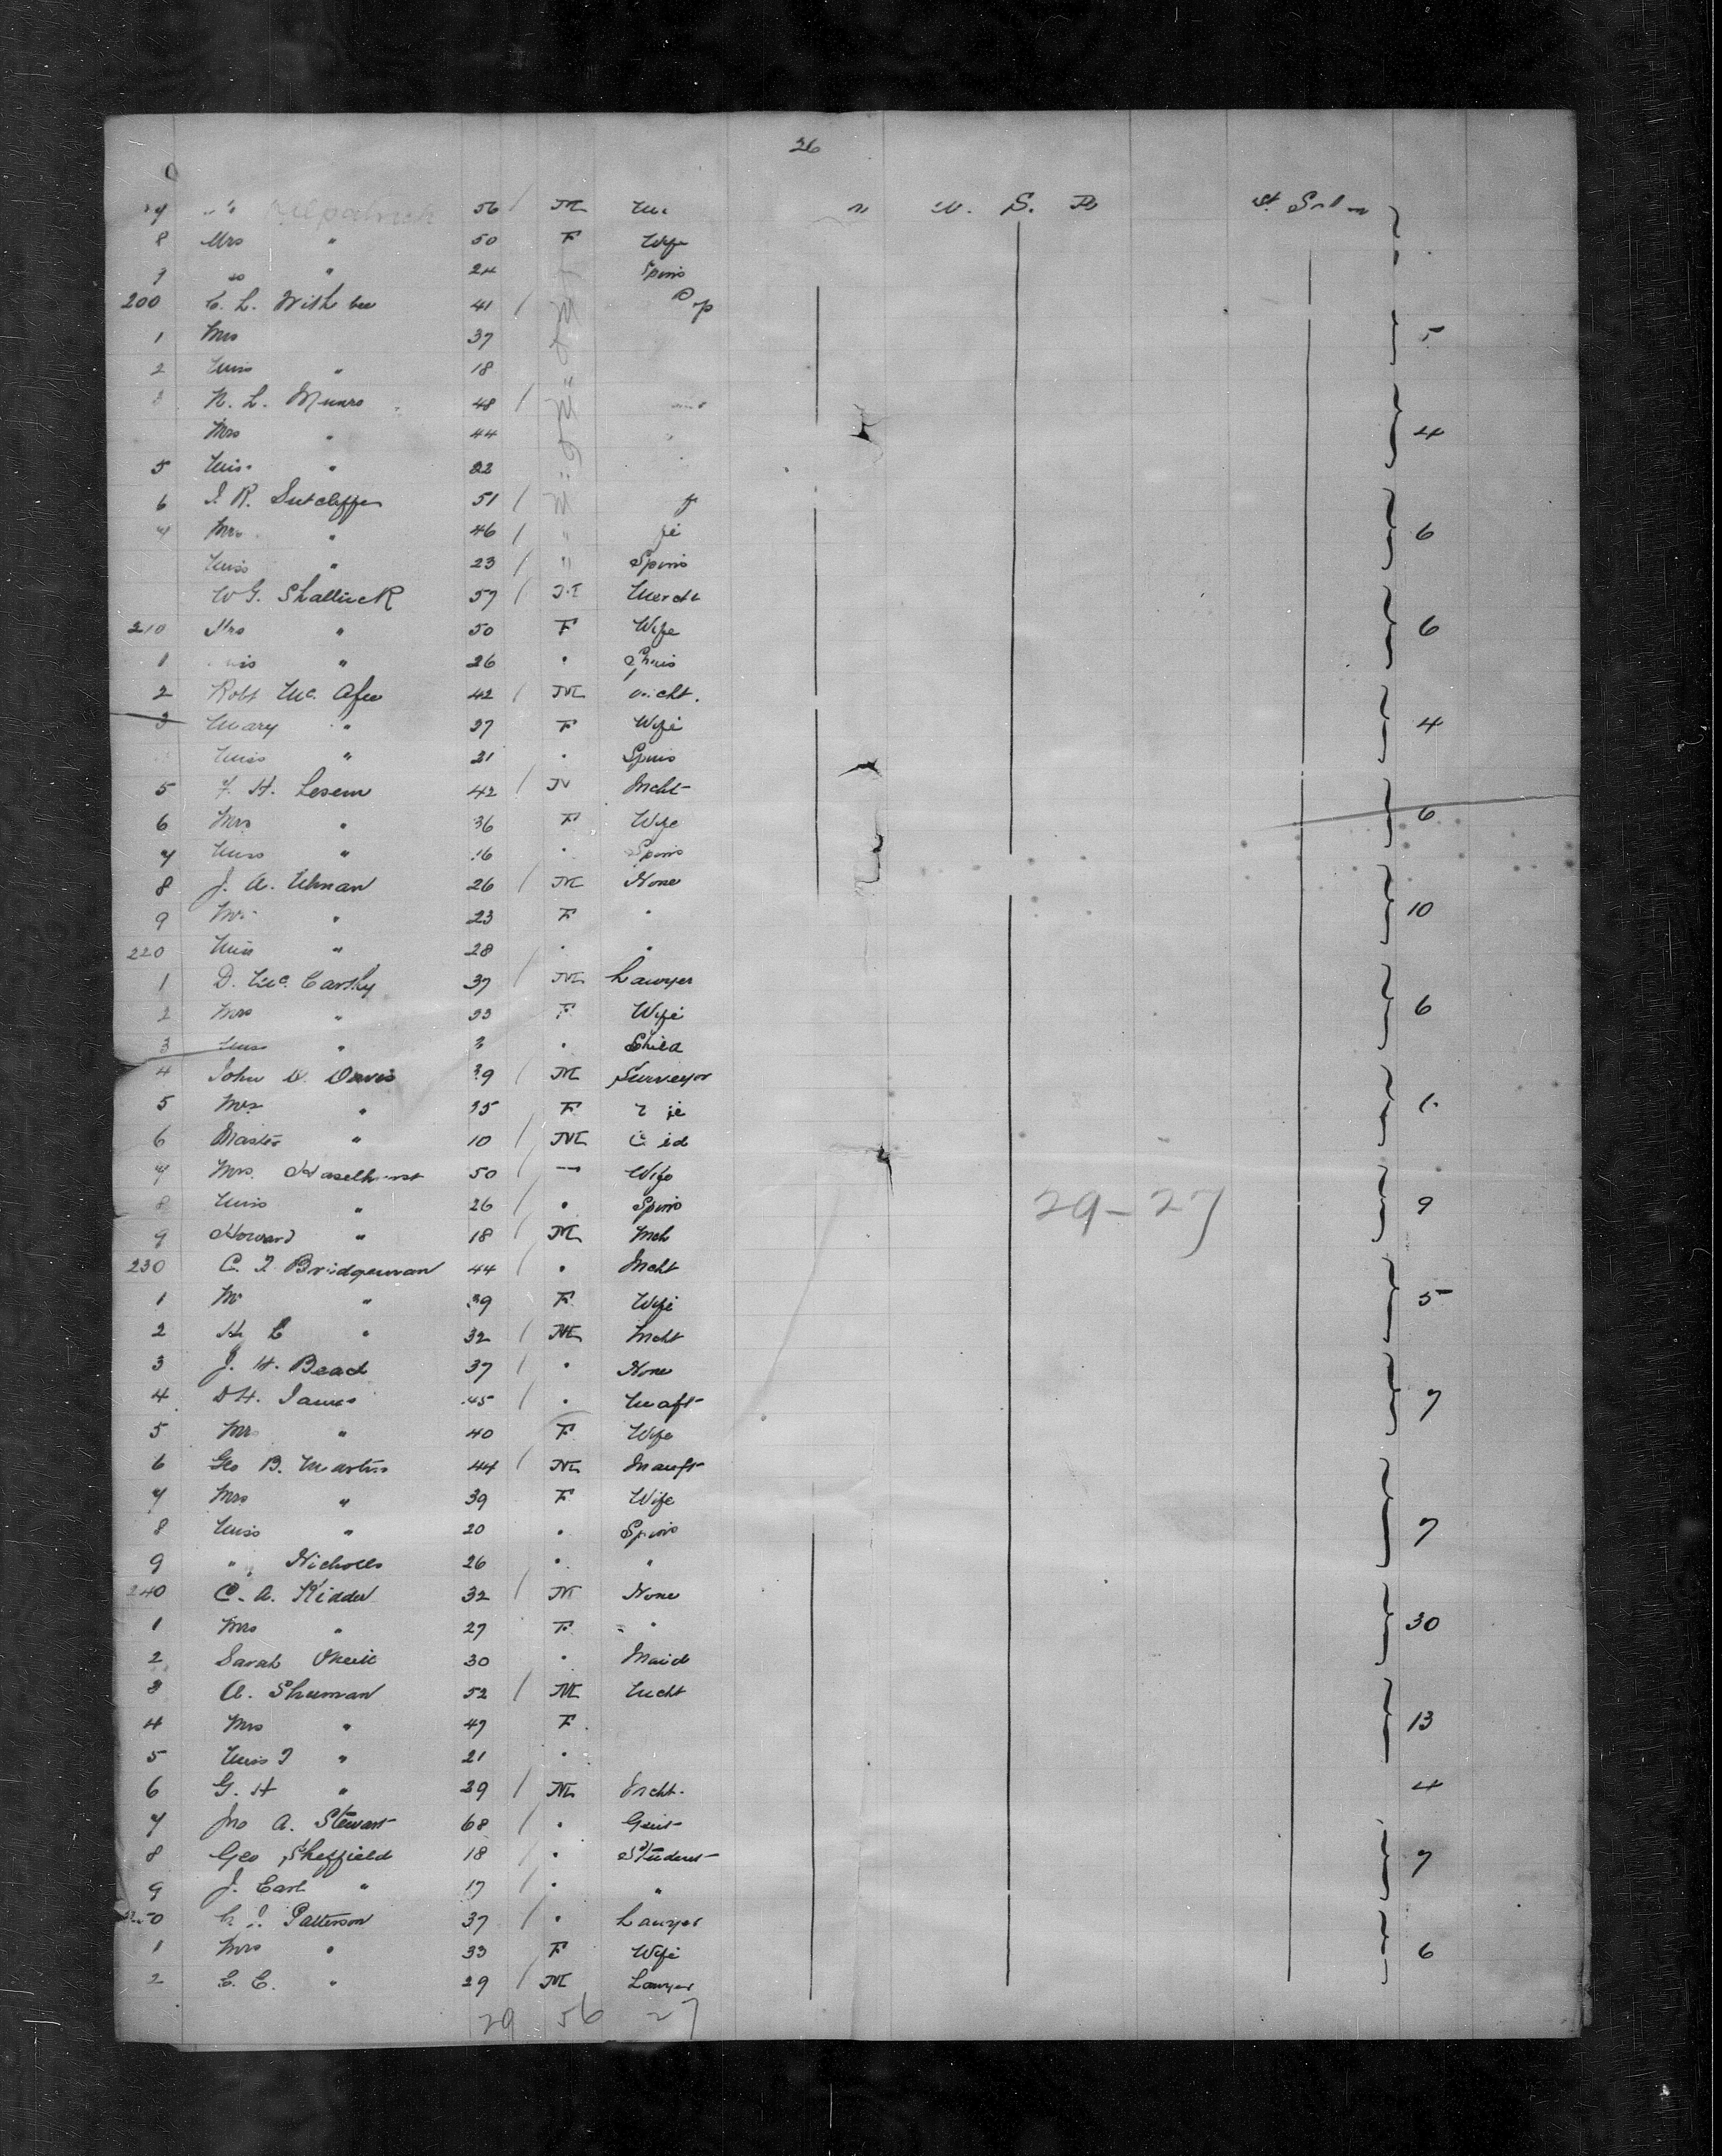 26
7 " Kilpatrick 56 / M U. S. A St. Saloon
8 Mrs " 50 F Wife
9 " 24 Spins
200 C. L. With bee 41 /
1 Mrs 37 5
2 Miss " 18
3 N. L. Munro 48 /
Mrs " 44 4
5 Miss " 22
6 I. R. Sutcliffe 51 / M
7 Mrs " 46 / " 6
Miss " 23 / " Spins
W G. Shattuck 57 / M Mercht
210 Mrs " 50 F Wife 6
1 Miss " 26 " Spins
2 Robt Mc. Afee 42 / M Mcht.
3 Mary " 37 F Wife 4
Miss " 21 " Spins
5 F. H. Lesem 42 / M Mcht
6 Mrs " 36 F Wife 6
7 Miss " 16 " Spins
8 J. A. Ulman 26 / M None
9 Mrs " 23 F " 10
220 Miss " 28 " "
1 D. Mc. Carthy 37 / M Lawyer
2 Mrs " 33 F Wife 6
3 Miss " 3 " Child
4 John D. Davis 39 / M Surveyor
5 Mrs " 35 F
6 Master " 10 / M
7 Mrs. Haselhurst 50 / Wife
8 Miss " 26 / " Spins 29-27 9
9 Howard " 18 / M Mch
230 C. I. Bridgeman 44 / " Mcht
1 " 39 F Wife 5
2 H L " 32 / M Mcht
3 J. H. Bead 37 / " None
4 D H. James 45 / " Maft 7
5 Mrs " 40 F Wife
6 Geo B. Martin 44 / M Manft
7 Mrs " 39 F Wife
8 Miss " 20 " Spins 7
9 " Nicholls 26 " "
240 C. A. Kidder 32 / M None
1 Mrs " 27 F " 30
2 Sarah Oneill 30 " Maid
3 A. Shuman 52 / M Mcht
4 Mrs " 47 F 13
5 Miss I " 21 "
6 G. H " 29 / M Mcht. 4
7 Jno A. Stewart 68 / " Gent
8 Geo Sheffield 18 / " Student 7
9 J. Earl " 17 / " "
250 Patterson 37 / " Lawyer
1 Mrs " 33 F Wife 6
2 C. C. " 29 / M Lawyer
29 56 27